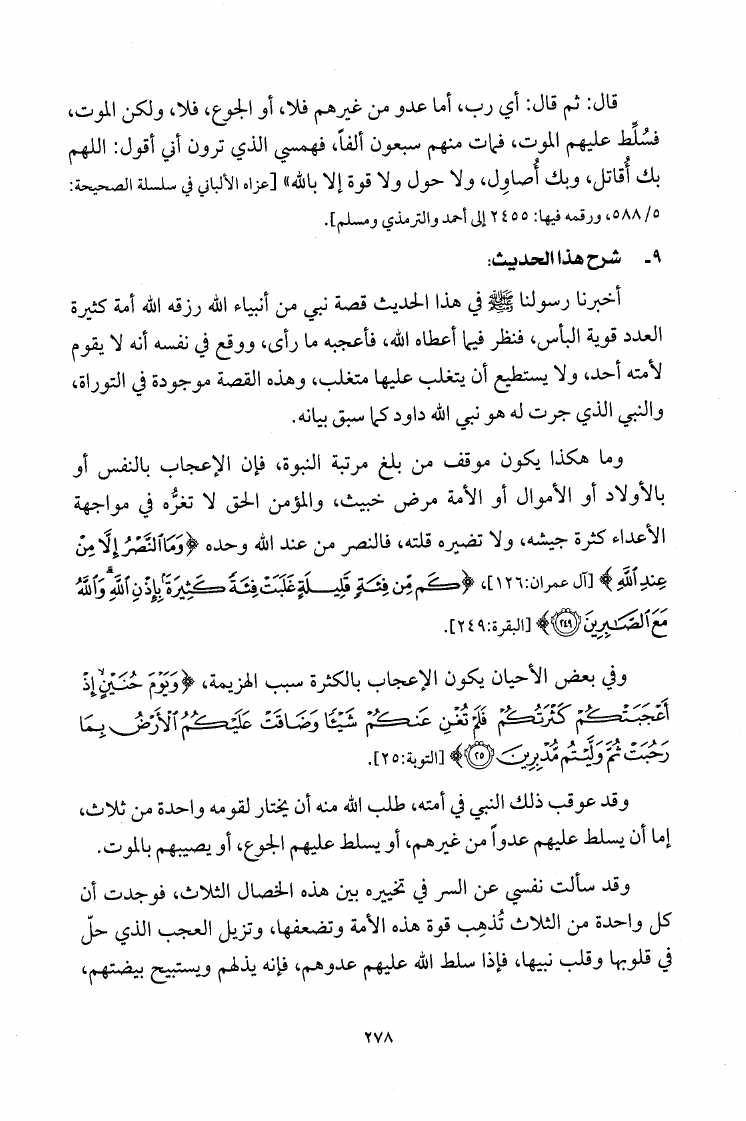 قال: ثم قال: أي رب، أما عدو من غيرهم فلا، أو الجوع، فلا، ولكن الموت،
فسُلِّط عليهم الموت، فمات منهم سبعون ألفاً، فهمسي الذي ترون أني أقول: اللهم
بك أُقاتل، وبك أُصاوِل، ولا حول ولا قوة إلا بالله» [عزاه الألباني في سلسلة الصحيحة:
٥٨٨/٥، ورقمه فيها: ٢٤٥٥ إلى أحمد والترمذي ومسلم].
٩- شرح هذا الحديث:
أخبرنا رسولنا ﷺ في هذا الحديث قصة نبي من أنبياء الله رزقه الله أمة كثيرة
العدد قوية البأس، فنظر فيما أعطاه الله، فأعجبه ما رأى، ووقع في نفسه أنه لا يقوم
لأمته أحد، ولا يستطيع أن يتغلب عليها متغلب، وهذه القصة موجودة في التوراة،
والنبي الذي جرت له هو نبي الله داود كما سبق بيانه.
وما هكذا يكون موقف من بلغ مرتبة النبوة، فإن الإعجاب بالنفس أو
بالأولاد أو الأموال أو الأمة مرض خبيث، والمؤمن الحق لا تغرُّه في مواجهة
الأعداء كثرة جيشه، ولا تضيره قلته، فالنصر من عند الله وحده ﴿وَمَا ٱلنَّصْرُ إِلَّا مِنْ
عِندِ ٱللَّهِ﴾ [آل عمران:١٢٦]، ﴿كَم مِّن فِئَةٍ قَلِيلَةٍ غَلَبَتْ فِئَةً كَثِيرَةَۢ بِإِذْنِ ٱللَّهِۗ وَٱللَّهُ
مَعَ ٱلصَّٰبِرِينَ ۝٢٤٩﴾ [البقرة:٢٤٩].
وفي بعض الأحيان يكون الإعجاب بالكثرة سبب الهزيمة، ﴿وَيَوْمَ حُنَيْنٍۙ إِذْ
أَعْجَبَتْكُمْ كَثْرَتُكُمْ فَلَمْ تُغْنِ عَنكُمْ شَيْـًٔا وَضَاقَتْ عَلَيْكُمُ ٱلْأَرْضُ بِمَا
رَحُبَتْ ثُمَّ وَلَّيْتُم مُّدْبِرِينَ ۝٢٥﴾ [التوبة:٢٥].
وقد عوقب ذلك النبي في أمته، طلب الله منه أن يختار لقومه واحدة من ثلاث،
إما أن يسلط عليهم عدواً من غيرهم، أو يسلط عليهم الجوع، أو يصيبهم بالموت.
وقد سألت نفسي عن السر في تخييره بين هذه الخصال الثلاث، فوجدت أن
كل واحدة من الثلاث تُذهِب قوة هذه الأمة وتضعفها، وتزيل العجب الذي حلّ
في قلوبها وقلب نبيها، فإذا سلط الله عليهم عدوهم، فإنه يذلهم ويستبيح بيضتهم،
٢٧٨